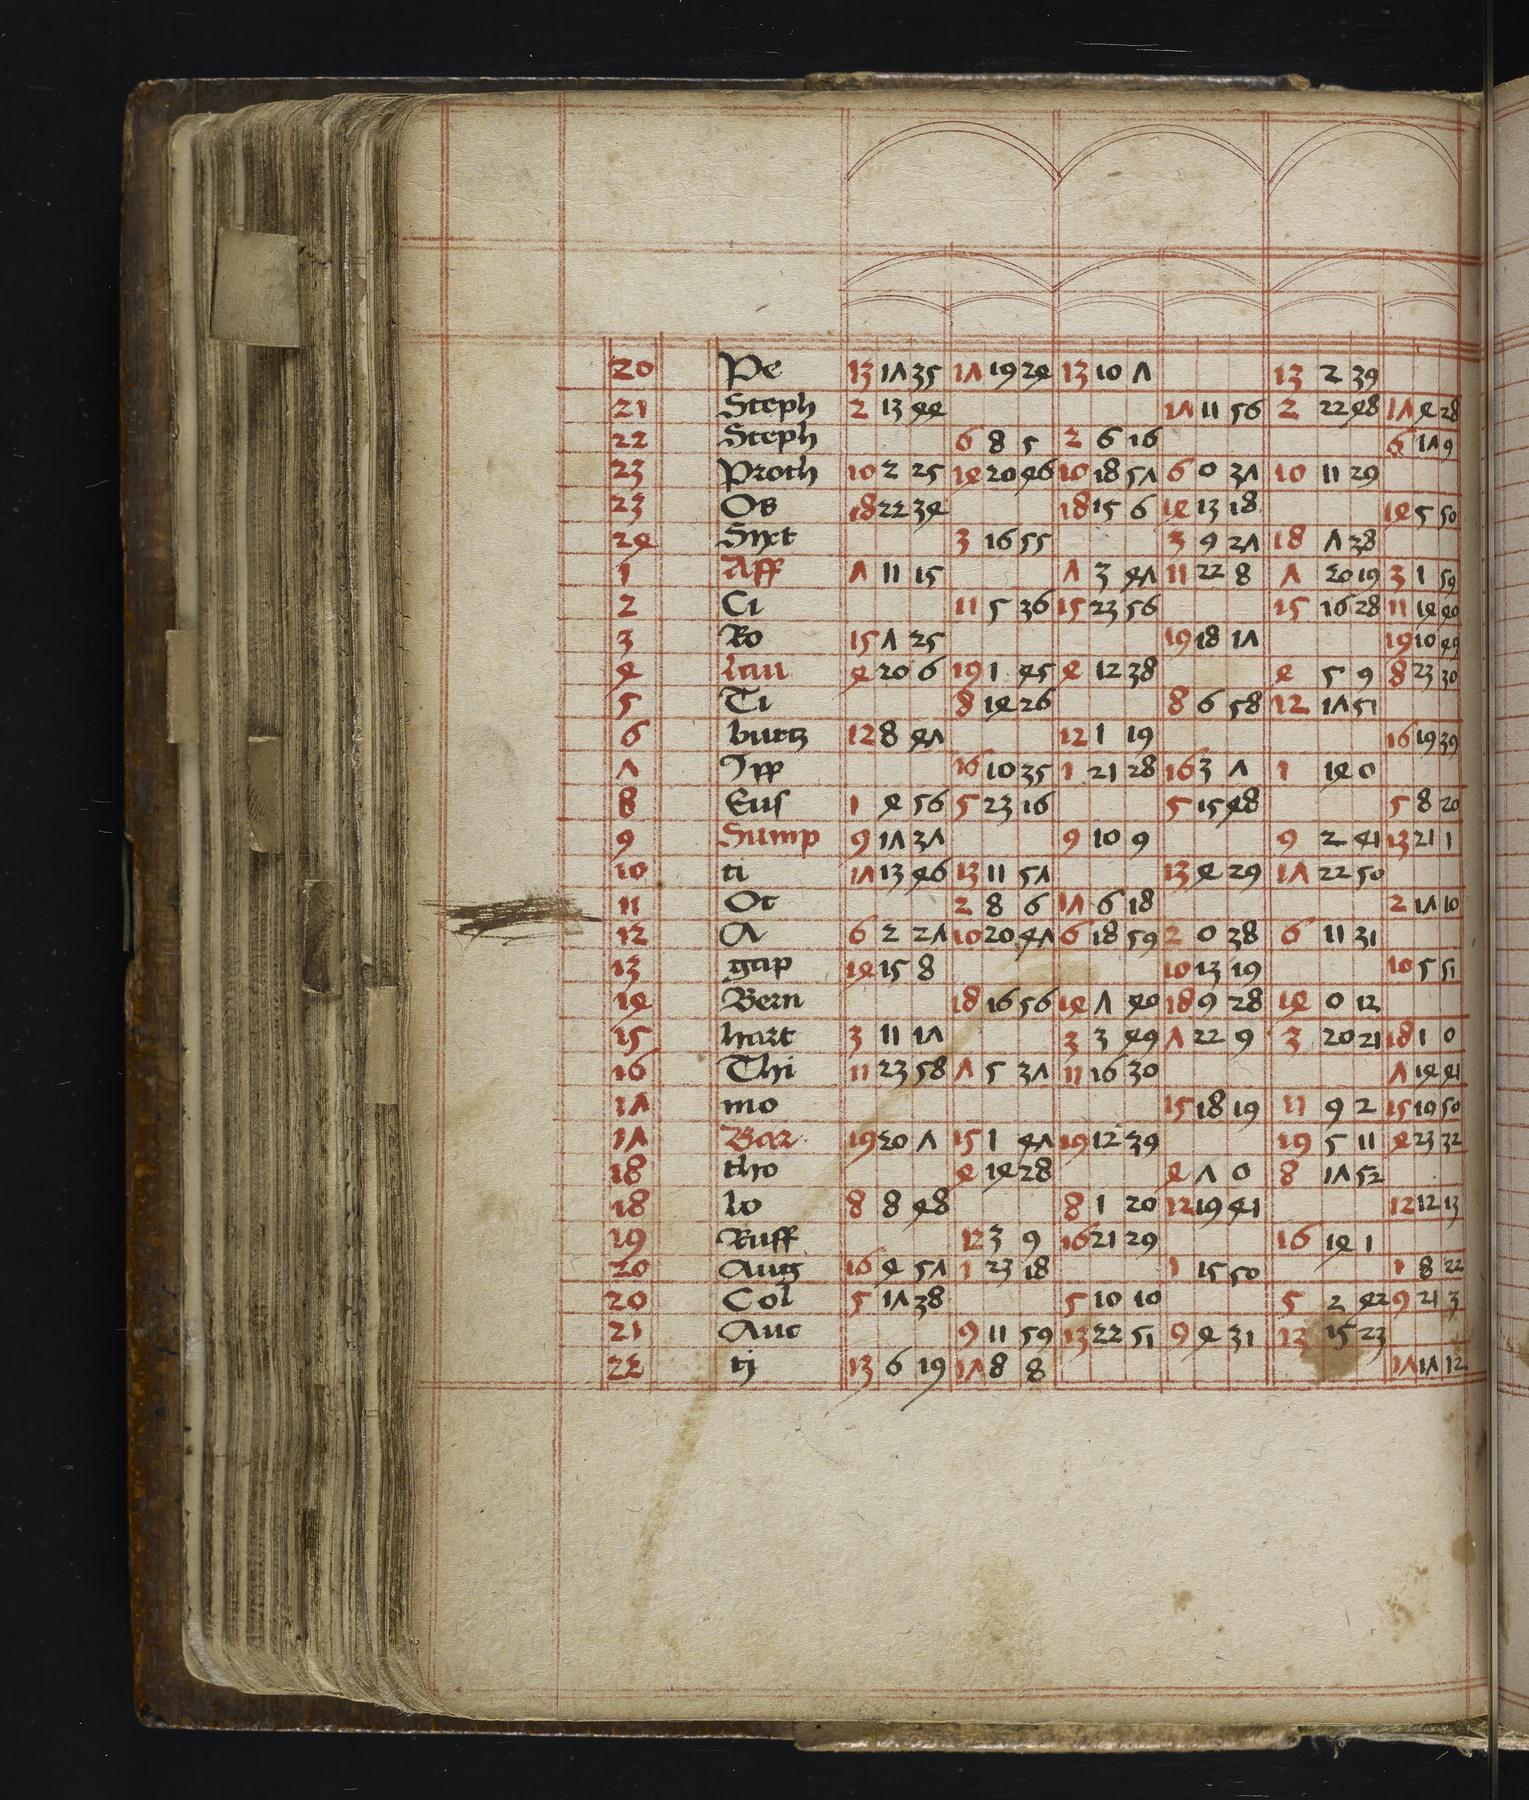 20 Pe 13 17 35 17 19 24 13 10 7 13 2 39
21 Steph 2 13 44 17 11 56 2 22 48 17 4 28
22 Steph 6 8 5 2 6 16 6 17 9
23 Proth 10 2 25 14 20 46 10 18 57 6 0 37 10 11 29
23 Os 18 22 34 18 15 6 14 13 18 14 5 50
24 Sixt 3 16 55 3 9 27 18 7 38
1 Aff 7 11 15 7 3 47 11 22 8 7 20 19 3 1 59
2 Ci 11 5 36 15 23 56 15 16 28 11 14 40
3 Ro 15 7 25 19 18 17 19 10 49
4 lau 4 20 6 19 1 45 4 12 38 4 5 9 8 23 30
5 Ti 8 14 26 8 6 58 12 17 51
6 burtz 12 8 47 12 1 19 16 19 39
7 Ipp 16 10 35 1 21 28 16 3 7 1 14 0
8 Eus 1 4 56 5 23 16 5 15 48 5 8 20
9 Sump 9 17 37 9 10 9 9 2 41 13 21 1
10 ti 17 13 46 13 11 57 13 4 29 17 22 50
11 Oc 2 8 6 17 6 18 2 17 10
12 A 6 2 27 10 20 47 6 18 59 2 0 38 6 11 31
13 gap 14 15 8 10 13 19 10 5 51
14 Bern 18 16 56 14 7 40 18 9 28 14 0 12
15 hart 3 11 17 3 3 49 7 22 9 3 20 21 18 1 0
16 Thi 11 23 58 7 5 37 11 16 30 7 14 41
17 mo 15 18 19 11 9 2 15 19 50
17 Bar 19 20 7 15 1 47 19 12 39 19 5 11 4 23 32
18 tho 4 14 28 4 7 0 8 17 52
18 lo 8 8 48 8 1 20 12 19 41 12 12 13
19 Ruff 12 3 9 16 21 29 16 14 1
20 Aug 16 4 57 1 23 18 1 15 50 1 8 22
20 Col 5 17 38 5 10 10 5 2 42 9 21 3
21 Auc 9 11 59 13 22 51 9 4 31 13 15 23
22 tj 13 6 19 17 8 8 17 17 12